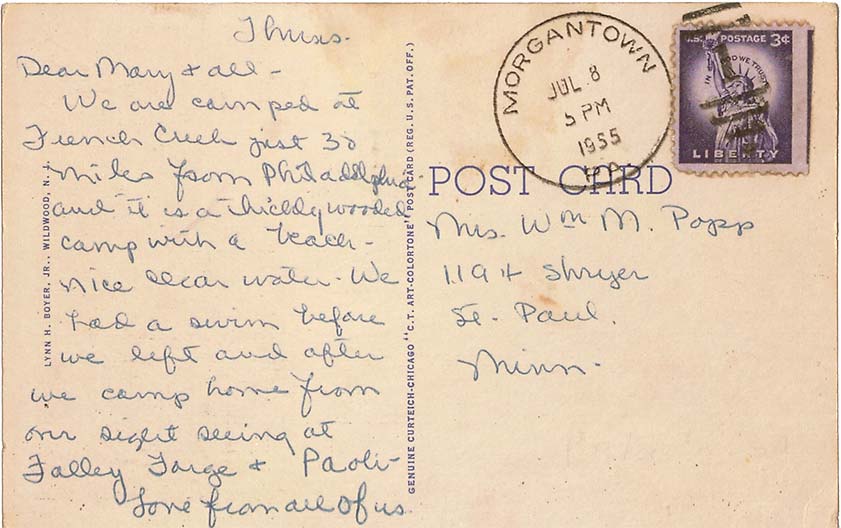 Thurs.
Dear Mary & all -
We are camped at
French Creek just 30
miles from Philadelphia
and it is a thickly wooded
camp with a beach -
nice clear water. We
had a swim before
we left and after
we camp home from
our sight seeing at
Falley Forge & Paoli -
Love from all of us.
LYNN H. BOYER, JR., WILDWOOD, N. J.
GENUINE CURTEICH-CHICAGO "C.T. ART-COLORTONE" POST CARD (REG. U.S. PAT. OFF.)
MORGANTOWN
JUL 8
5 PM
1955
U.S. POSTAGE 3¢
IN GOD WE TRUST
LIBERTY
POST CARD
Mrs. Wm M. Popp
1194 Shryer
St. Paul.
Minn.